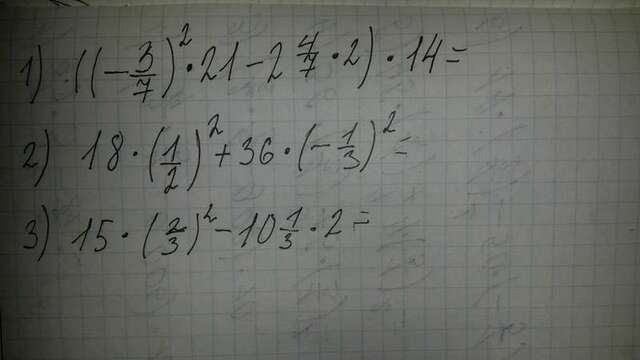 1) ((-3/7)²·21-2 4/7·2)·14=
2) 18·(1/2)²+36·(-1/3)²=
3) 15·(2/3)²-10 1/3·2=